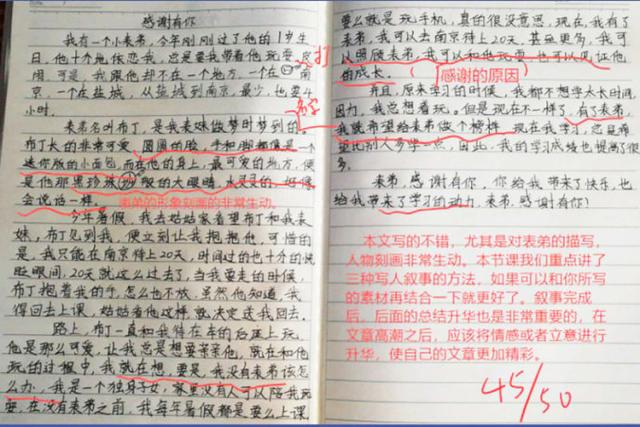 感谢有你
我有一个小表弟，今年刚刚过了他的1岁生
日，他十分地依恋我，总是要我带着他玩耍
闹，可是，我跟他却不在一个地方，一个在
京，一个在盐城，从盐城到南京，最少，也要4
小时。
打
名字
表弟名叫布丁，是我表妹做梦时梦到的
布丁长的非常可爱，圆圆的脸，手和脚都像是一个
迷你版的小面包，而在他的身上，最可爱的地方，便
是他那黑珍珠般的大眼睛，水灵灵的，好像
会说话一样。
表弟的形象刻画的非常生动。
今年暑假，我去姑姑家看望布丁和我表
妹，布丁见到我，便立刻让我抱抱他，可惜的
是，我只能在南京待上20天，时间过的也十分的快
眨眼间，20天就这么过去了，当我要走的时候，
布丁抱着我的手，怎么也不放，虽然他知道，我
得回去上课，姑姑看他这样，就决定送我回去。
路上，布丁一直和我待在车的后座上玩，
他是那么可爱，让我总是想要亲亲他，就在和他
玩的过程中，我就在想，要是，我没有表弟该怎
么办，我是一个独身子女，家里没有人可以陪我玩
耍，在没有表弟之前，我每年暑假都是要么上课
要么就是玩手机，真的很没意思，现在，我有了
表弟，我可以去南京待上20天，甚至更多，我可
以照顾表弟，我可以和他玩耍，也可以见证他
的成长。
感谢的原因
并且，原来学习的时候，我都不想学太长时间
因为，我总想着玩。但是现在不一样了，有了表弟，
我就希望给表弟做个榜样，现在我学习，总是希
望比别人多学一点，由此，我的学习成绩也提高了很
多。
表弟，感谢有你，你给我带来了快乐，也
给我带来了学习的动力，表弟，感谢有你！
本文写的不错，尤其是对表弟的描写，
人物刻画非常生动。本节课我们重点讲了
三种写人叙事的方法，如果可以和你所写
的素材再结合一下就更好了。叙事完成
后。后面的总结升华也是非常重要的，在
文章高潮之后，应该将情感或者立意进行
升华，使自己的文章更加精彩。
45/50